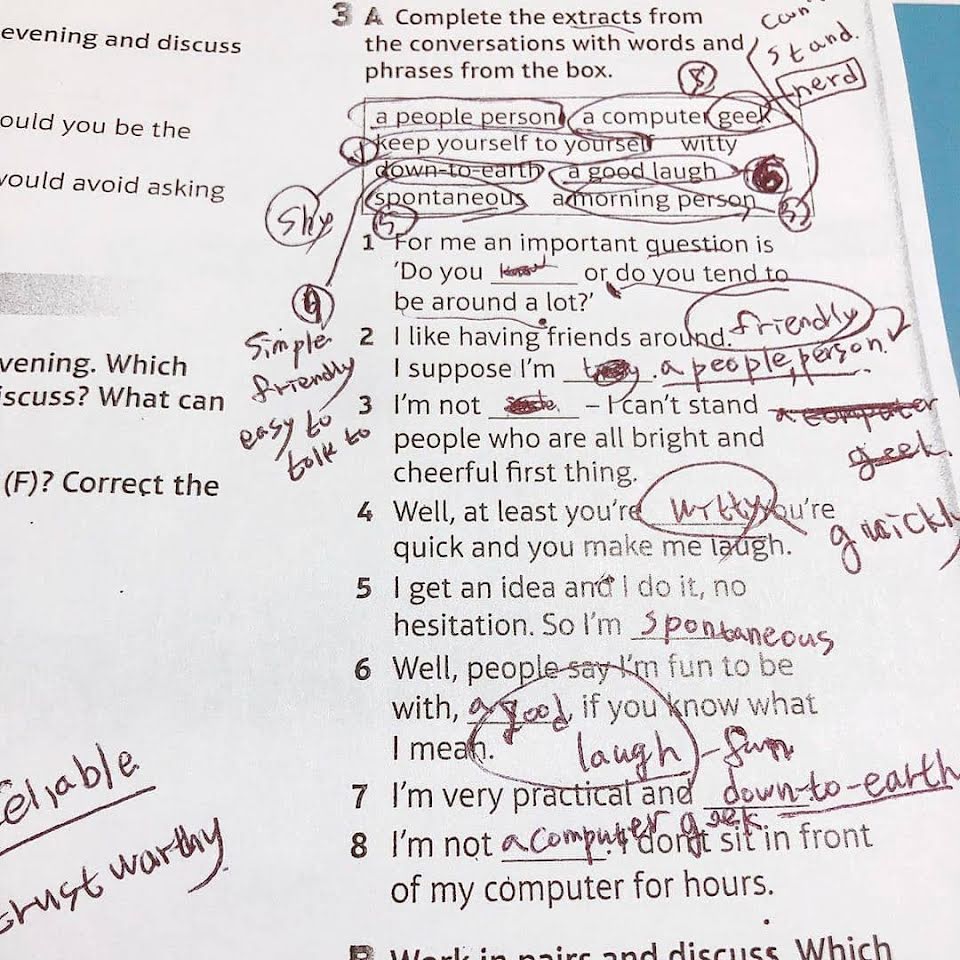 evening and discuss
ould you be the
would avoid asking
vening. Which
iscuss? What can
(F)? Correct the
eliable
trustworthy
3 A Complete the extracts from
the conversations with words and
phrases from the box.
stand.
nerd
8
a people person a computer geek
keep yourself to yourself witty
down-to-earth a good laugh
spontaneous a morning person
Shy
5
3
1 For me an important question is
'Do you ______ or do you tend to
be around a lot?'
Simple
friendly
easy to
talk to
2 I like having friends around. friendly
I suppose I'm ______. a people person.
3 I'm not ______ – I can't stand a computer
geek.
people who are all bright and
cheerful first thing.
4 Well, at least you're witty you're
quickly
quick and you make me laugh.
5 I get an idea and I do it, no
hesitation. So I'm spontaneous
6 Well, people say I'm fun to be
with, a good, if you know what
I mean. laugh - fun
7 I'm very practical and down-to-earth
8 I'm not a computer geek. I don't sit in front
of my computer for hours.
B Work in pairs and discuss. Which